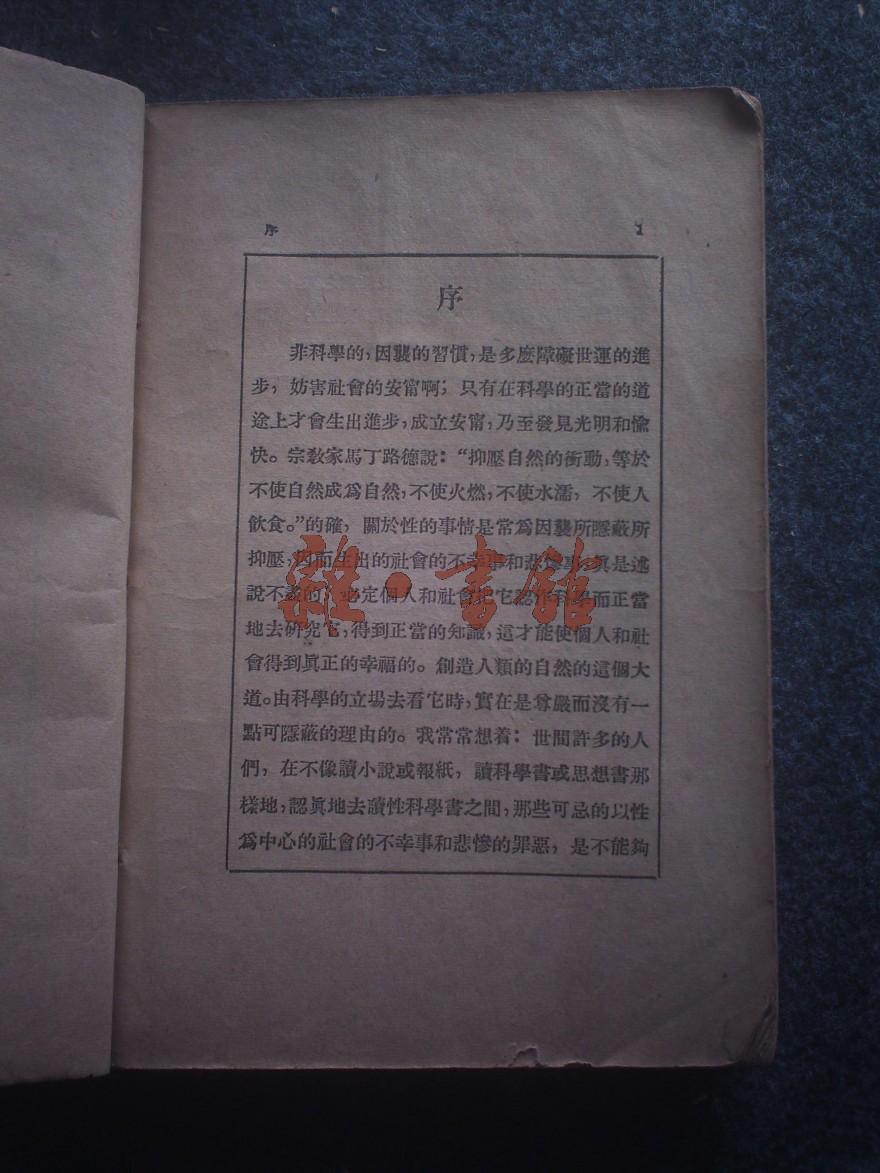 序 1
序
非科學的，因襲的習慣，是多麽障礙世運的進
步，妨害社會的安甯啊；只有在科學的正當的道
途上才會生出進步，成立安甯，乃至發見光明和愉
快。宗敎家馬丁路德說：“抑壓自然的衝動，等於
不使自然成爲自然，不使火燃，不使水濡，不使人
飮食。”的確，關於性的事情是常爲因襲所隱蔽所
抑壓，因而生出的社會的不幸事和悲慘事，眞是述
說不盡的。必定個人和社會把它認作科學而正當
地去硏究它，得到正當的知識，這才能使個人和社
會得到眞正的幸福的。創造人類的自然的這個大
道。由科學的立場去看它時，實在是尊嚴而沒有一
點可隱蔽的理由的。我常常想着：世間許多的人
們，在不像讀小說或報紙，讀科學書或思想書那
樣地，認眞地去讀性科學書之間，那些可忌的以性
爲中心的社會的不幸事和悲慘的罪惡，是不能夠
雜·書館